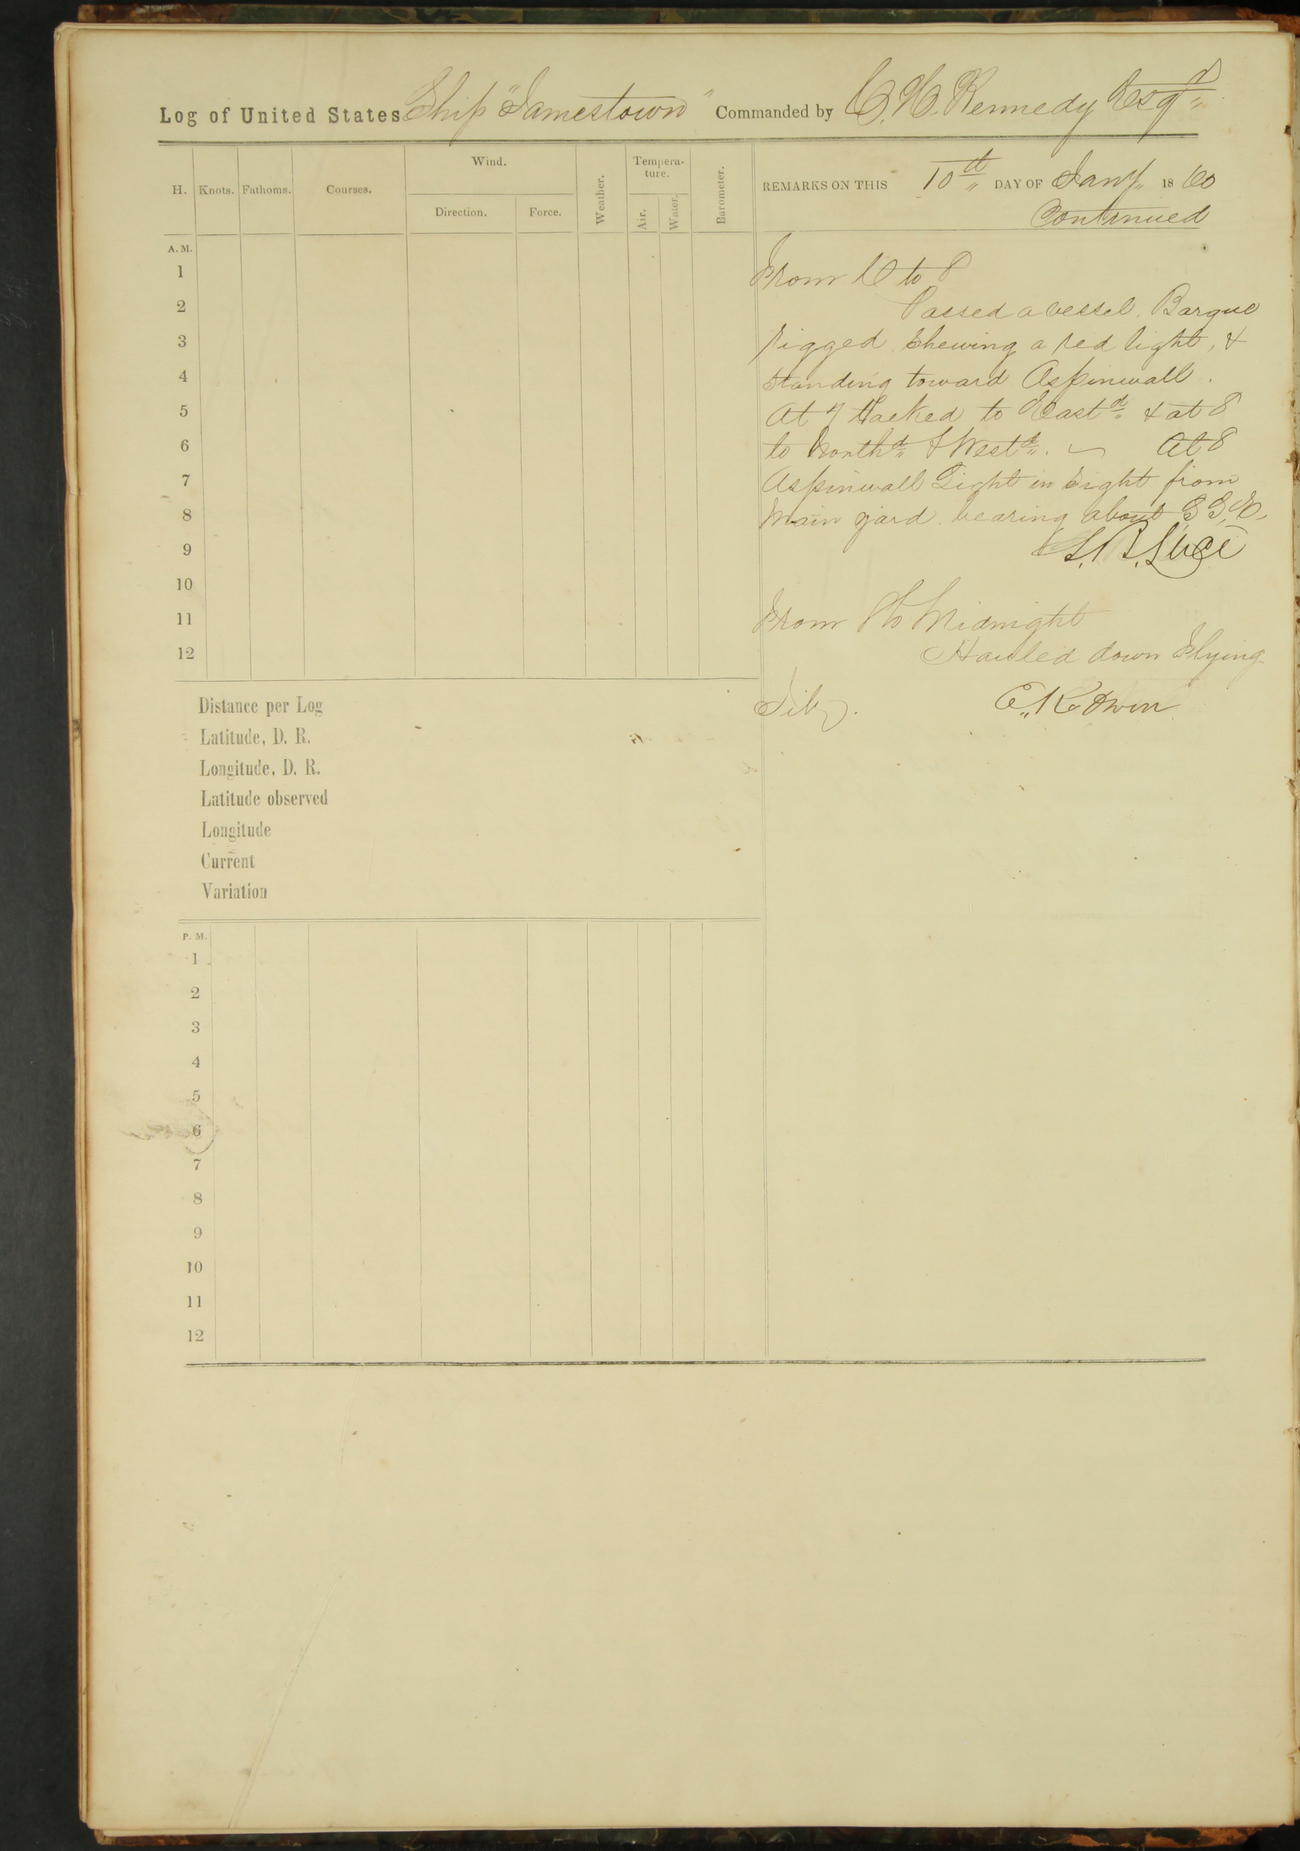 Log of United States Ship "Jamestown" Commanded by C. H. Kennedy Esqr
H. Knots. Fathoms. Courses. Wind. Direction. Force. Weather. Tempera-ture. Air. Water. Barometer.
REMARKS ON THIS 10th DAY OF Jany 1860
Continued
A. M.
1
2
3
4
5
6
7
8
9
10
11
12
From 6 to 8
Passed a vessel, Barque
rigged shewing a red light, &
standing toward Aspinwall.
At 7 tacked to Eastd & at 8
to Northd & Westd. At 8
Aspinwall Light in sight from
Main yard bearing about S S, E,
S. B. Luce
From 8 to Midnight
Hauled down Flying
Jib.
Distance per Log
Latitude, D. R.
Longitude, D. R.
Latitude observed
Longitude
Current
Variation
P. M.
1
2
3
4
5
6
7
8
9
10
11
12